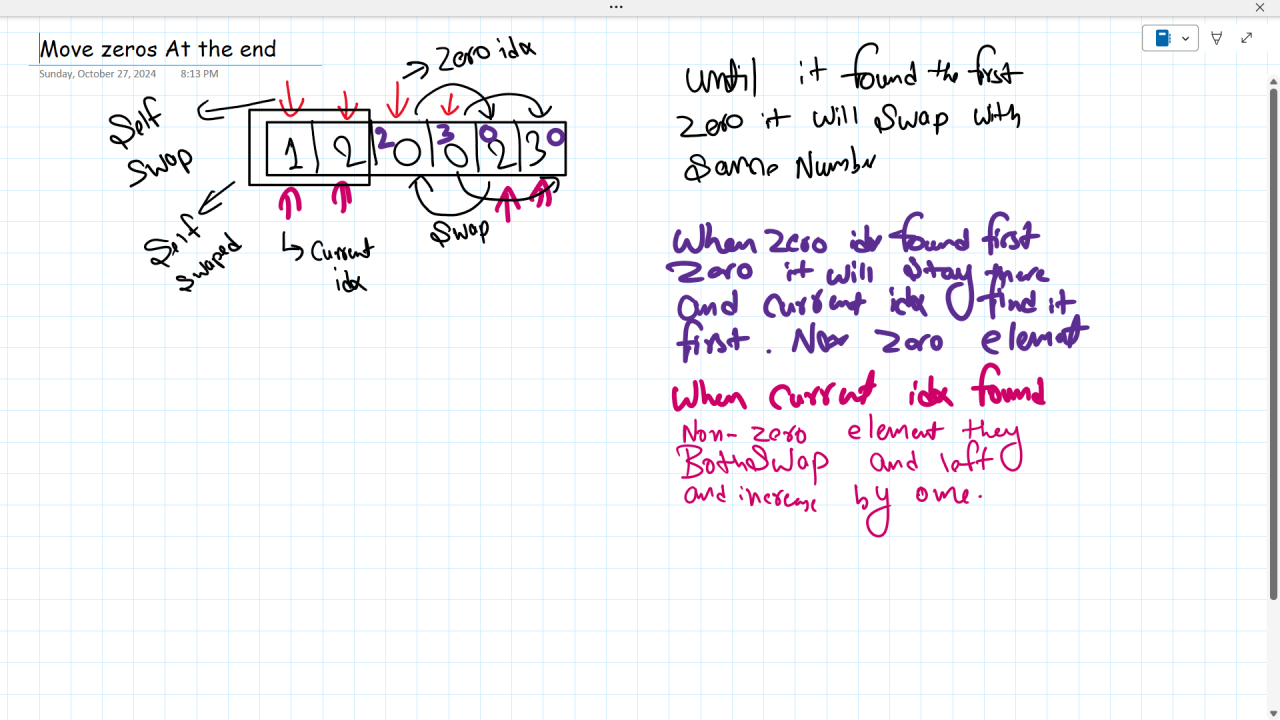 Move zeros At the end
Sunday, October 27, 2024 8:13 PM
Zero idx
Self
Swap
1 2 2 0 3 0 0 2 3 0
Self
Swaped
Current
idx
Swap
Until it found the first
Zero it will Swap with
Same Number
When Zero idx found first
Zero it will stay there
and current idx find it
first. Non zero element
When current idx found
Non-zero element they
Both Swap and left
and increase by one.